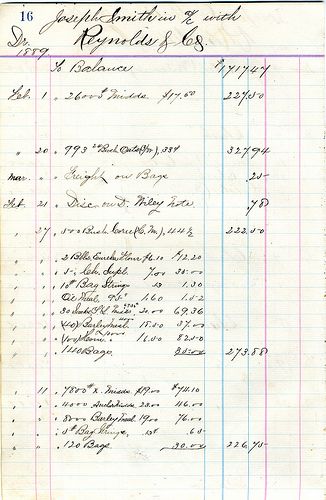 16
Joseph Smith in a/c with
Dr. Reynolds & Co.
1889
To Balance $1717 47
Feb. 1 " 2600 # Midds $17.50 227.50
" 20 " 793 Bush Oats 327 94
Mar. " " Freight on Bags .25
Feb. 21 " Disc. on D. Wiley Note .78
" 27 " 500 Bush Corn (C. M.), 44 1/2 222.50
" 2 Bbls Eureka Flour $6.10 $12.20
" 5 " Ch. Supl. 7.00 35.00
" 10 # Bag Strings 13 1.30
" Oil Meal 95 # 1.60 1.52
" 30 Sacks Midds 20.00 69.36
" (40) Barley Meal 18.50 37.00
" (100) Hom. 16.50 82.50
" 140 Bags 35.00 273.88
" 11 " 7800 # X. Midds $19.00 $74.10
" 4000 23.00 46.00
" 8000 Barley Meal 19.00 76.00
" 5 # Bag Strings, 13 # .65
" 120 Bags 30.00 226.75